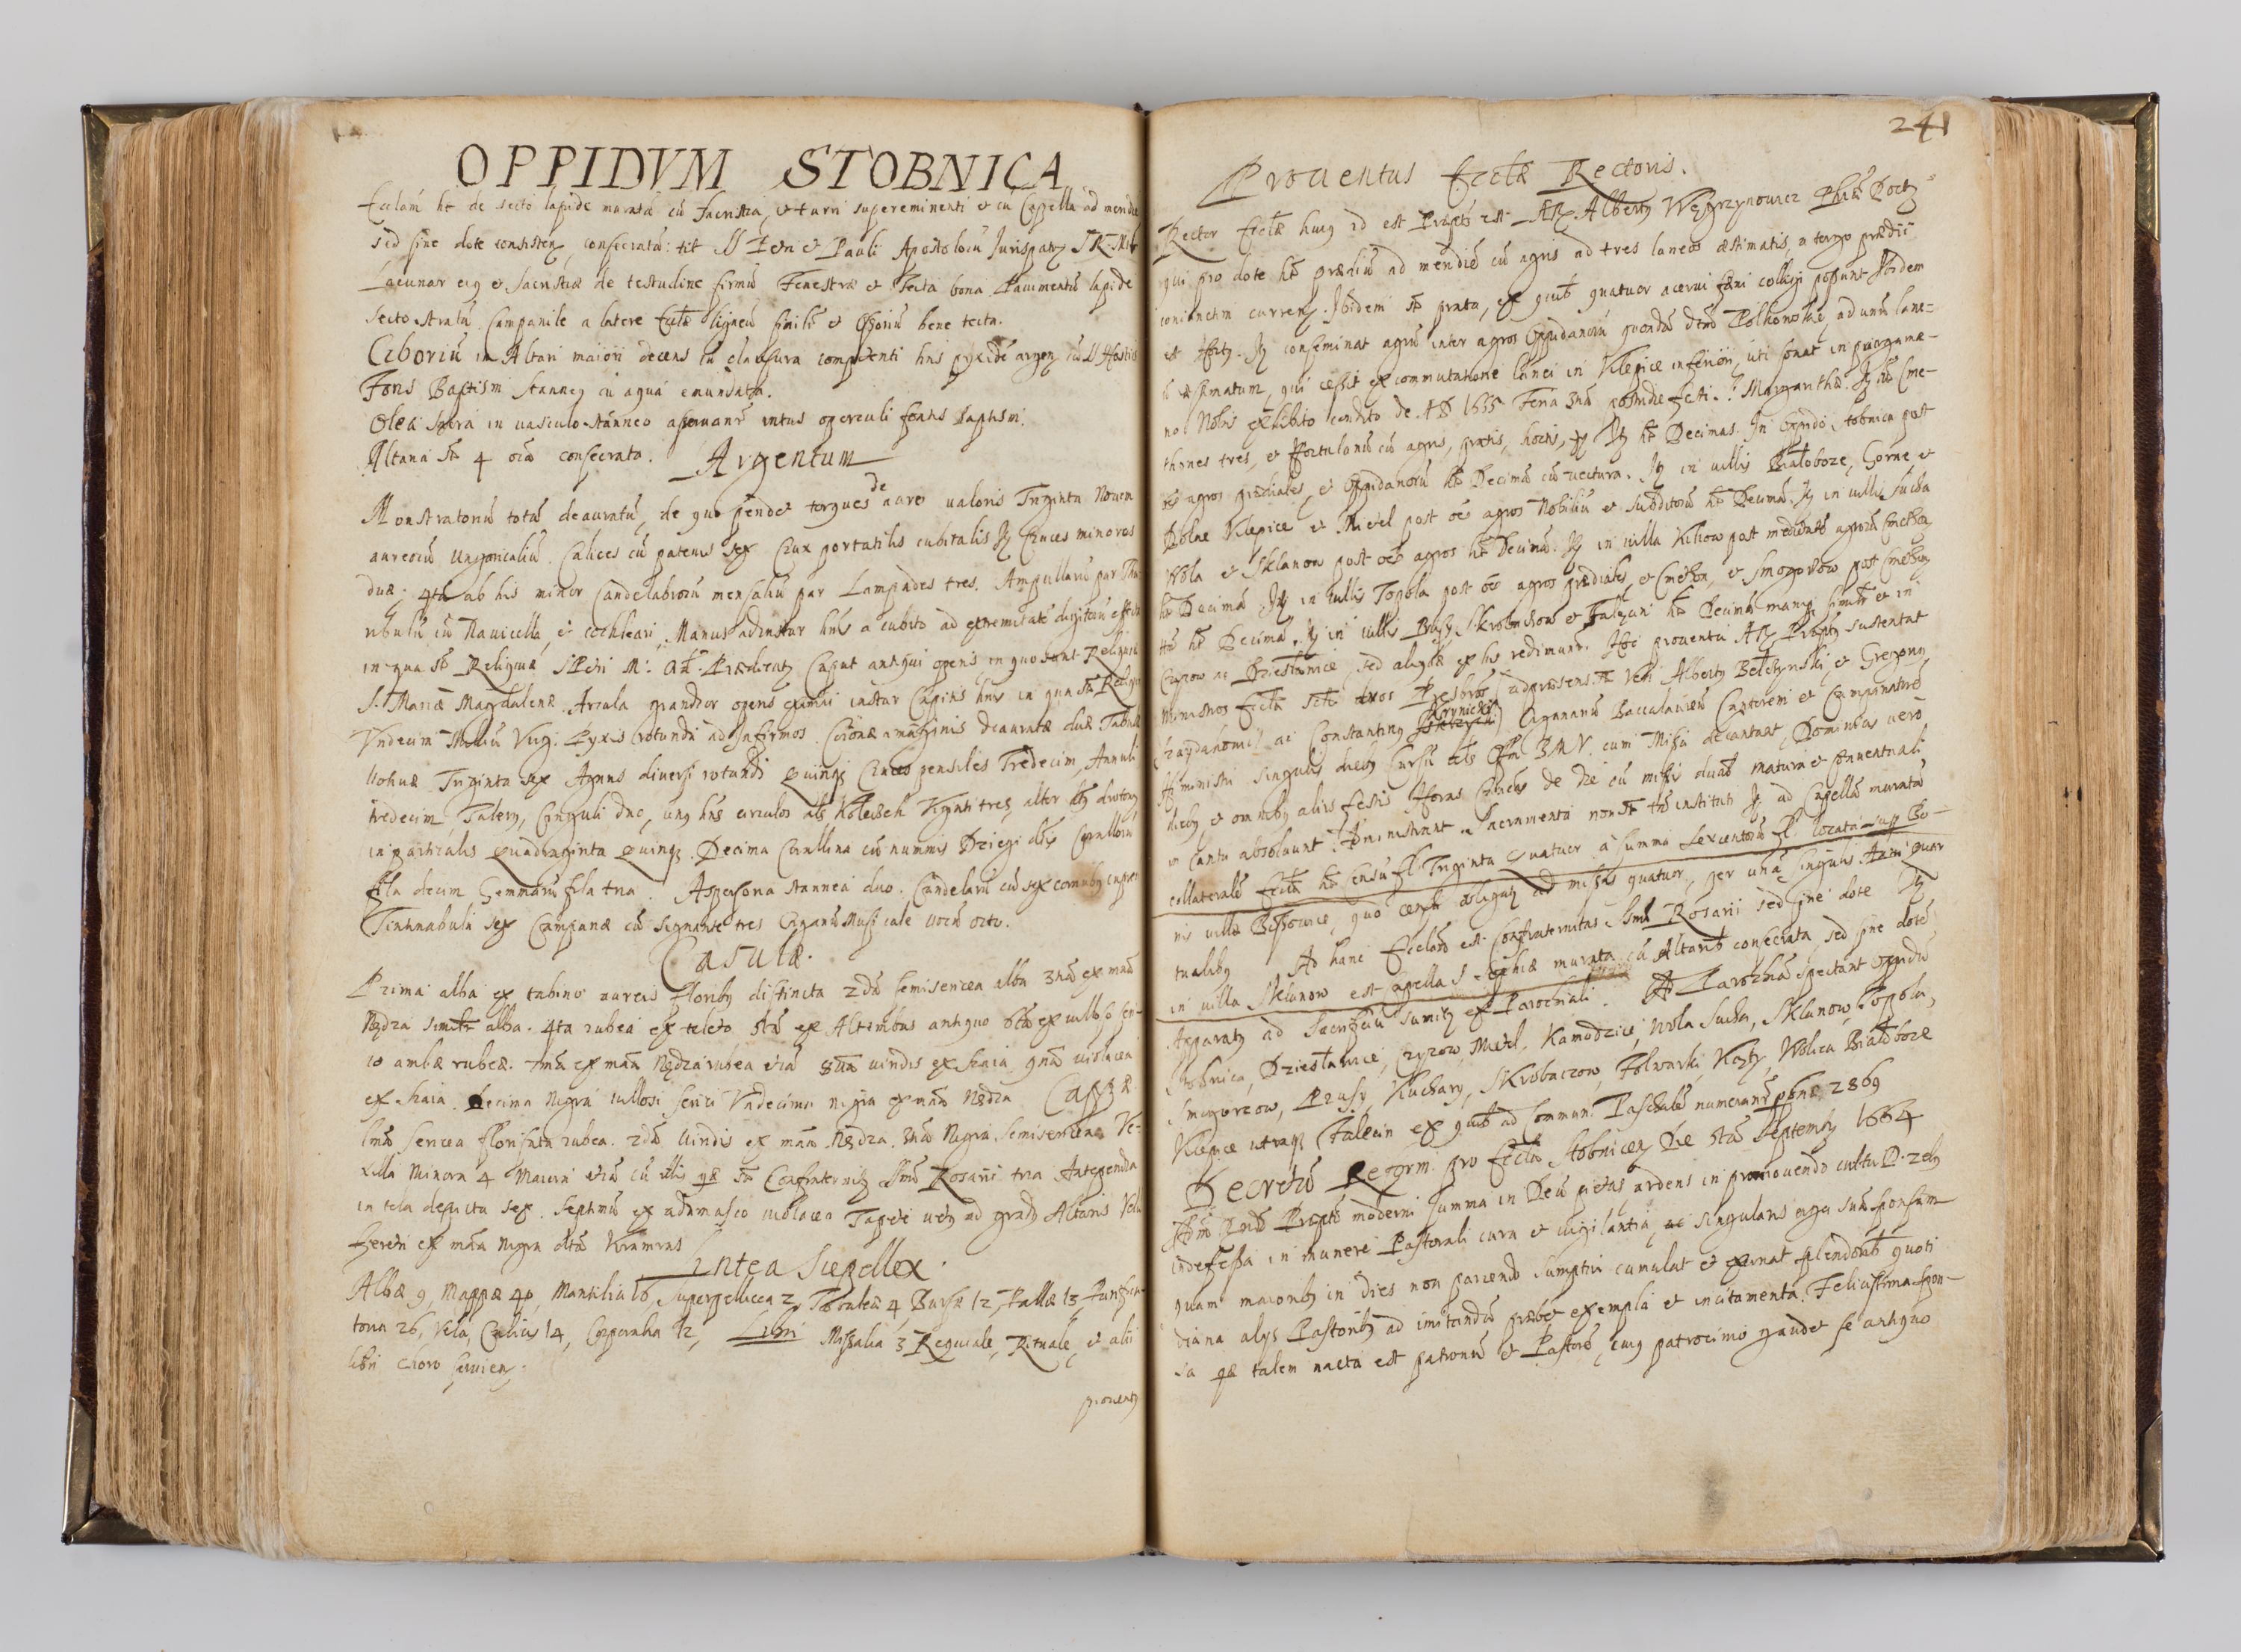 OPPIDVM STOBNICA
Ecclam ht de secto lapide muratã cũ Sacristia, et turri supereminenti et cũ Cappella ad meridie
sed sine dote consisten, consecratũ: tit SS Petri et Pauli Apostolorũ Jurispatr
Lacunar eig et Sacristiæ de testudine firmũ Fenestræ et Tecta bona Pauimentũ lapide
secto stratũ. Campanile a latere Ecclæ ligneũ et bene tecta.
Ciboriũ in Altari maiori decens cũ clausura competenti hns pyxidẽ argen cũ SS Hostiis
Fons Baptismi stanneg cũ aquã emundata.
Olea sacra in uasculo stanneo asseruantr intus operculi fontis Baptismi.
Altaria st 4 oĩa consecrata. Argentum
Monstratoriũ totũ deauratũ, de quo pendet torques de auro ualoris Triginta Nouem
aureorũ Ungaricaliũ. Calices cũ patenis sex Crux portatilis cubitalis It Cruces minores
duæ, 4ta ab his minor Candelabrorũ mensaliũ par Lampades tres. Ampullarũ par Thu
ribulũ cũ Nauicella, et cochleari, Manus adinstar hns a cubito ad extremitatẽ digitorũ
in qua st Reliquiæ S Petri M: Prædicat Caput antiqui operis in quo sunt Reliquiæ
S. Mariæ Magdalenæ. Arcula grandior operis eximii instar Capitis hns in qua st Reliq
Undecim Milliũ Virg. Pyxis rotunda ad Infirmos. Coronæ imaginis deauratæ duæ Tabellæ
Uotiuæ Triginta sex Agnus diuersi rotundi Quinq Cruces pensiles Tredecim, Annuli
tredecim, Talery, Cinguli duo, ung hns circulos als Koleczek Viginti tres, alter
in particulis quadraginta quinq. Decima Corallina cũ nummis Corallorũ
fila decem Gemmarũ fila tria. Aspersoria stannea duo. Candelarũ cũ sex cornuby
Tintinnabula sex Campanæ cũ signante tres Organũ Musicale uocũ octo.
Casulæ.
Prima alba ex tabino aureis floriby distincta 2da semisericea alba 3tia ex maa
Nędza simitr alba. 4ta rubea ex teleto 5ta ex Altembas antiquo 6ta ex uilloso seri-
co ambæ rubeæ. 7ma ex maa Nędza rubea 8ua uiridis ex Kraia 9na uiolacea
ex Kraia. Decima nigra uillosi serici Undecima nigra ex maa Nędza Cappæ
Ima sericea florisata rubea. 2da Uiridis ex maa Nędza. 3tia Nigra semisericea. Ve-
xilla Minora 4 Maiora cũ illis quæ st Confraternitatis Smi Rosarii tria Antependia
in tela depicta sex. Septimũ ex adamasco uiolaceo Tapete ad grady Altaris
feretri ex maa nigra
Lintea Supellex.
Albæ 9, Mappæ 40, Mantilia 16, Superpellicea 2, 4 Bursæ 12, Pallæ 13,
toria 26, Vela, Calicis 14, Corporalia 12, Libri Missalia 3 Requiale, Rituale, et alii
libri choro seruien.
prouents
241
Prouentus Ecclæ Rectoris.
Rector Ecclæ huig id est Præpts est AR. Alberty Węgrzynowicz Phiæ Doctr
qui pro dote ht prædiũ ad meridiẽ cũ agris ad tres laneos æstimatis, a tergo prædii
coniunctim curren. Ibidem st prata, ex quib quatuor acerui fæni colligi possunt Ibidem
est Horty. It conseminat agrũ inter agros Oppidanorũ quendã dtũ Polkonoskie, ad unũ lane-
ũ æstimatum, qui cessit ex commutatione lanei in Klępicæ inferiori, uti sonat in pargame-
no Nobis exhibito condito de AD 1555 Feria 3tia postridie festi S. Margarithæ. It ht Cme-
thones tres, et Hortulanũ cũ agris, pratis, hortis, It ht Decimas. In Oppido Stobnica post
oẽs agros prædiales, et Oppidanorũ ht Decimã cũ uectura. It in uillis Białoboze, Gorne et
Dolne Klępice et Mietel post oẽs agros Nobiliũ et Subditorũ ht Decimã. It in uillis Sucha
Wola et Sklanow post oẽs agros ht Decimã. It in uilla Kikow post medietatẽ agrorũ Cmethon
ht Decimã It in uillis Topola post oẽs agros prædiales, et Cmethon, et Smogorzow post Cmethon
ht Decimã. It in uillis Prusy, Skrobaczow et Falęcin ht Decimã manip simitr et in
Czyzow ac Dziesławice, sed aliqtæ ex his redimunr. Hoc prouentu AR Præpty sustentat
Ministros Ecclæ scte duos Presbros (adpræsens st Vsti Alberty Bełczynski, et Gregory
Czaydanowic) ac Constanting Krynicki Organariũ Baccalaureũ Cantorem et Campanatorẽ
Hi ministri singulis dieby Cursũ BMV. cum Missa decantant, Dominicis uero
dieby, et omniby aliis festis Horas Canoĩas de Die cũ missis duab matura et Conuentuali
in cantu absoluunt. Administrant Sacramenta non st tñ instituti It ad Capellã muratã
collateralẽ Ecclæ ht Censũ fl Triginta Quatuor a summa Sexcentorũ fl. locata sup Bo-
nis uillæ Bissowice, quo censu obligat ad missas quatuor, per unã singulis Anni Quar
tualiby Ad hanc Ecclam est Confraternitas Smi Rosarii sed sine dote It
in uilla Sklanow est Capella S Sophiæ murata cũ Altarib consecrata sed sine dote
Apparaty ad Sacrificiũ sumit ex Parochiali. Ad Parochiã spectant Oppidũ
Stobnica, Dziesławice, Czyzow, Mietel, Kamodzice, Wola Sucha, Sklanow, Topola,
Smogorzow, Prusy, Kuchary, Skrobaczow, Folwarki, Kąty, Wolica Białoboze
Klępice utraq Falęcin ex quib ad Commun: Paschalẽ numerantr psonæ 2869
Decretũ Reform: pro Eccla Stobnicen Die 5ta Septembr 1664
Admi Rndi Præpti moderni summa in Deũ pietas, ardens in promouendo cultu D. zely
indefessa in munere Pastorali cura et uigilantia, ac singularis erga suã sponsam
quam maioriby in dies non parcendo sumptui cumulat et exornat splendorib quoti
diana alys Pastoriby ad imitandũ præbet exempla et incitamenta. Felicissima spon-
sa quæ talem nacta est patronũ et Pastorẽ, cuig patrocinio gaudet se antiquo